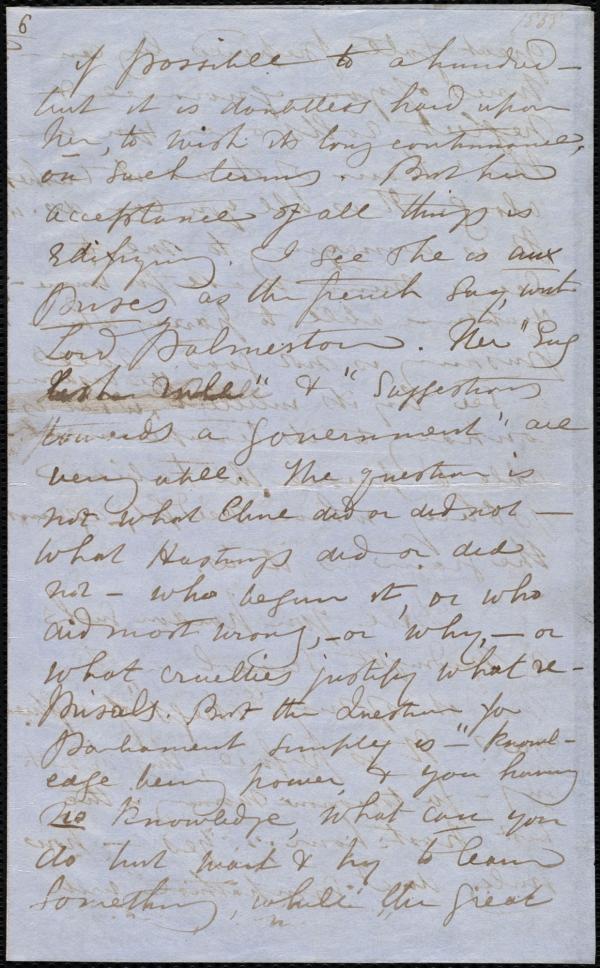 6
1858
if possible to a hundred—
but it is doubtless hard upon
her, to wish its long continuance,
on such terms. But her
acceptance of all things is
edifying. I see she is aux
Prises, as the french say, with
Lord Palmerston. Her "Eng
rule" & "Suggestions
towards a Government" are
very able. The question is
not what Clive did or did not —
what Hastings did or did
not — who began it, or who
did most wrong, — or why, — or
what cruelties justify what re-
prisals. But the Question for
Parliament simply is — "Knowl-
edge being power, & you having
no Knowledge, what can you
do but wait & try to learn
something, while the great